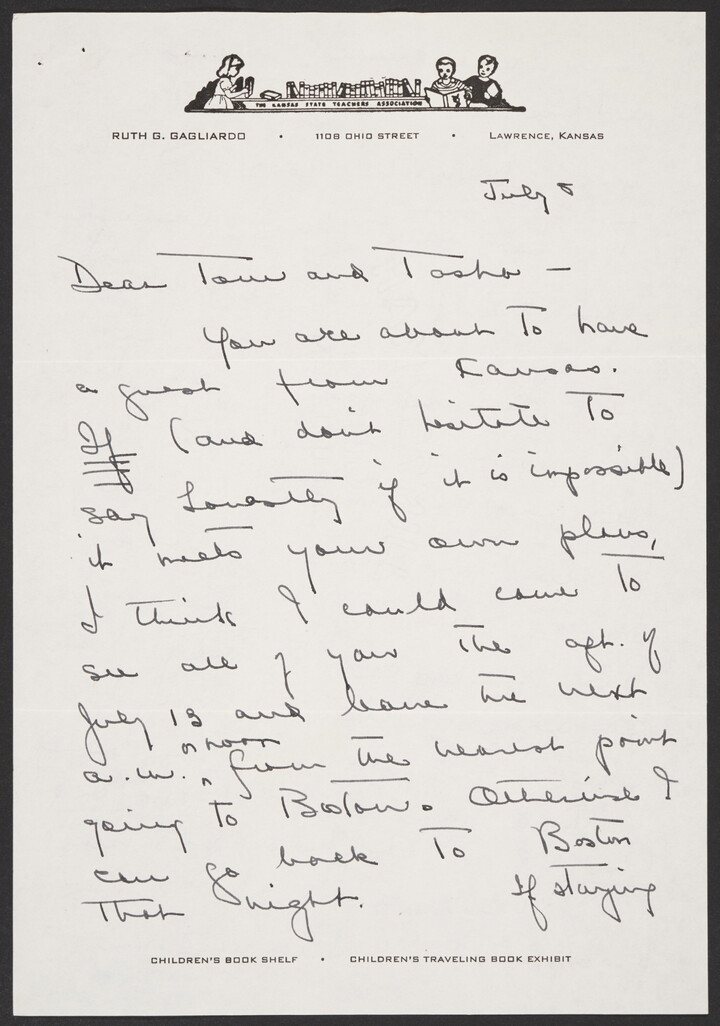 THE KANSAS STATE TEACHERS ASSOCIATION
RUTH G. GAGLIARDO • 1108 OHIO STREET • LAWRENCE, KANSAS
July 8
Dear Tom and Tasha —
You are about to have
a guest from Kansas.
If (and don't hesitate to
say honestly if it is impossible)
it meets your own plans,
I think I could come to
see all of you the aft. of
July 13 and leave the next
or noon
a.m. ^ from the nearest point
going to Boston. Otherwise I
can go back to Boston
that night. If staying
CHILDREN'S BOOK SHELF • CHILDREN'S TRAVELING BOOK EXHIBIT